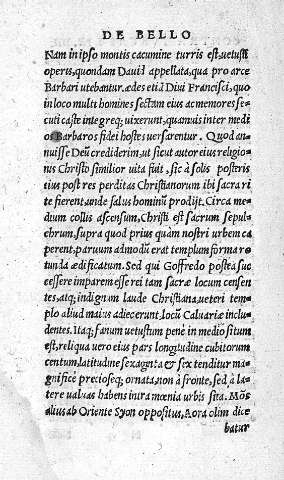 DE BELLO
Nam in ipso montis cacumine turris est, uetusti
operis, quondam Dauid appellata, qua pro arce
Barbari utebantur. ædes etiã Diui Francisci, quo
in loco multi homines sectam eius ac memores se-
cuti caste integreq; uixerunt, quamuis inter medi
os Barbaros fidei hostes uersarentur. Quod an-
nuisse Deũ crediderim, ut sicut autor eius religio-
nis Christo similior uita fuit, sic à solis posteris
eius post res perditas Christianorum ibi sacra ri
te fierent, unde salus hominũ prodijt. Circa me-
dium collis ascensum, Christi est sacrum sepul-
chrum, supra quod prius quàm nostri urbem ca
perent, paruum admodũ erat templum forma ro
tunda ædificatum. Sed qui Goffredo postea suc
cessere imparem esse rei tam sacræ locum censen
tes, atq; indignum laude Christiana, ueteri tem-
plo aliud maius adiecerunt, locũ Caluariæ inclu-
dentes. Itaq; fanum uetustum penè in medio situm
est, reliqua uero eius pars longitudine cubitorum
centum, latitudine sexaginta & sex tenditur ma-
gnificè precioseq; ornata, non à fronte, sed à la-
tere ualuas habens intra mœnia urbis sita. Mõs
alius ab Oriente Syon oppositus, Mora olim dice
batur